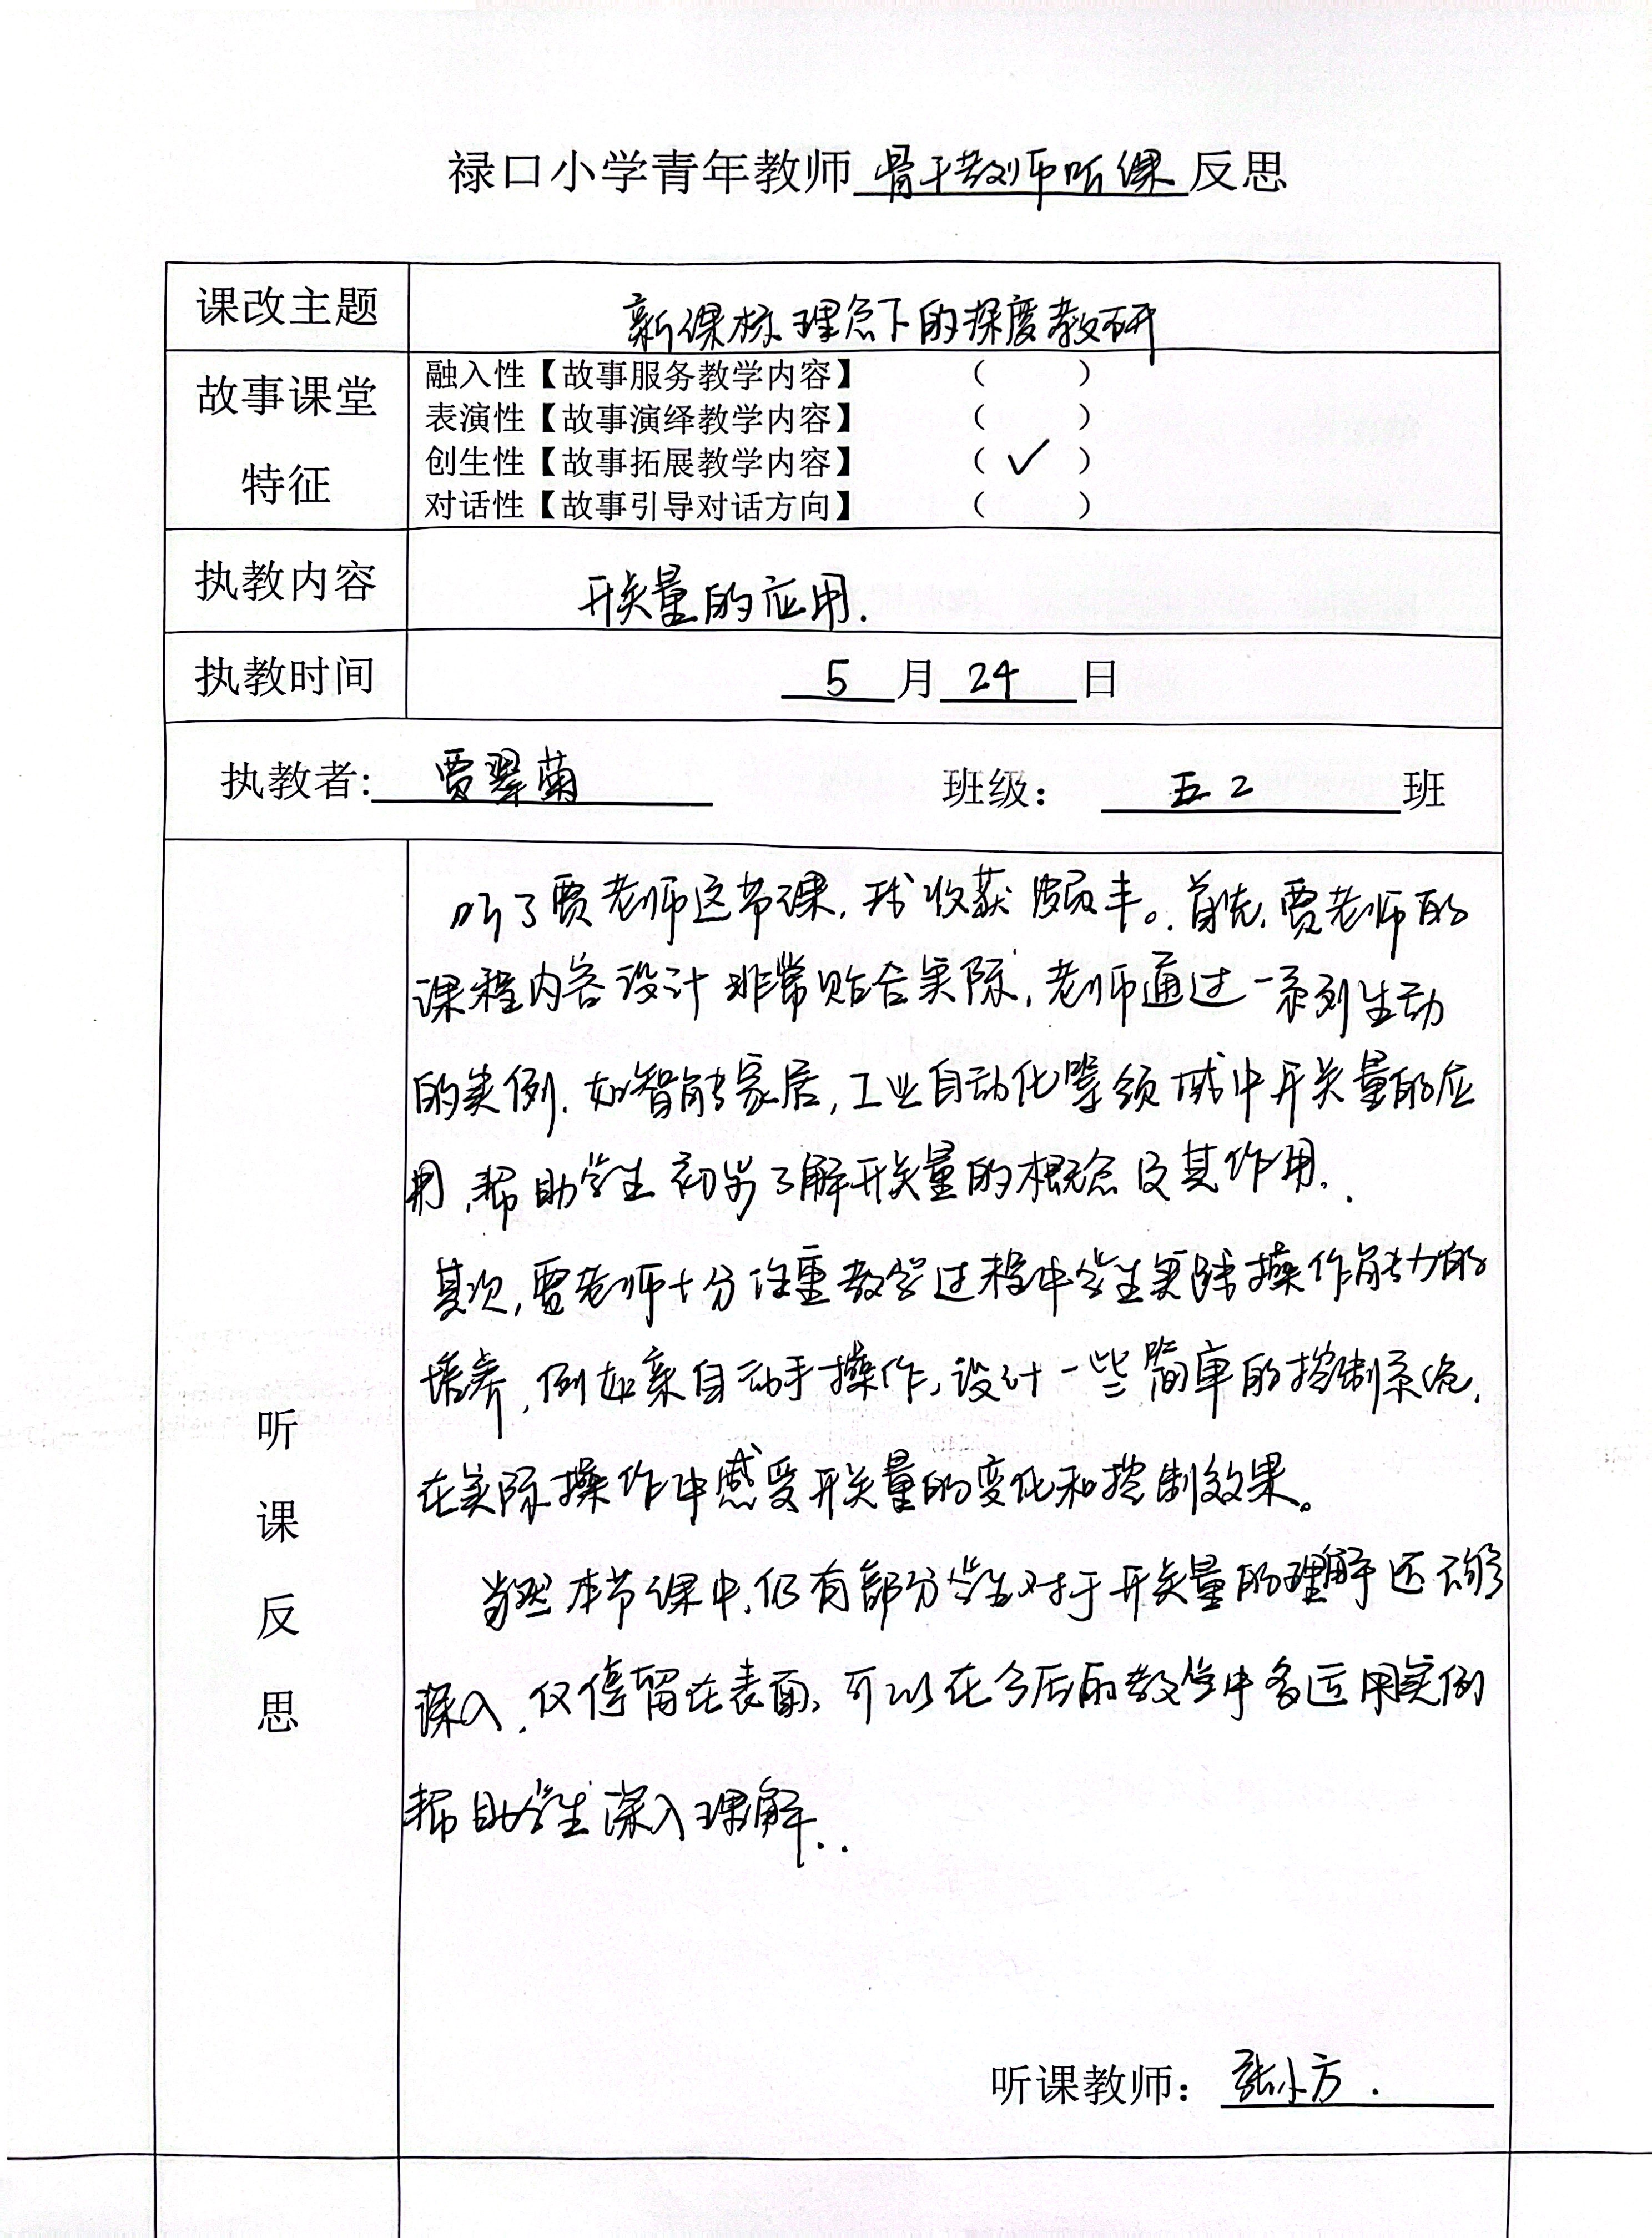 禄口小学青年教师骨干教师听课反思
课改主题 新课标理念下的深度教研
故事课堂特征
融入性【故事服务教学内容】 （ ）
表演性【故事演绎教学内容】 （ ）
创生性【故事拓展教学内容】 （ ✓ ）
对话性【故事引导对话方向】 （ ）
执教内容 开关量的应用.
执教时间 5月24日
执教者: 贾翠菊 班级： 五2班
听课反思
听了贾老师这节课，我收获颇丰。首先，贾老师的
课程内容设计非常贴合实际，老师通过一系列生动
的实例，如智能家居，工业自动化等领域中开关量的应
用，帮助学生初步了解开关量的概念及其作用。
其次，贾老师十分注重教学过程中学生实践操作能力的
培养，例如亲自动手操作，设计一些简单的控制系统，
在实际操作中感受开关量的变化和控制效果。
当然本节课中，仍有部分学生对于开关量的理解还不够
深入，仅停留在表面，可以在今后的教学中多运用实例
帮助学生深入理解..
听课教师： 张小方.